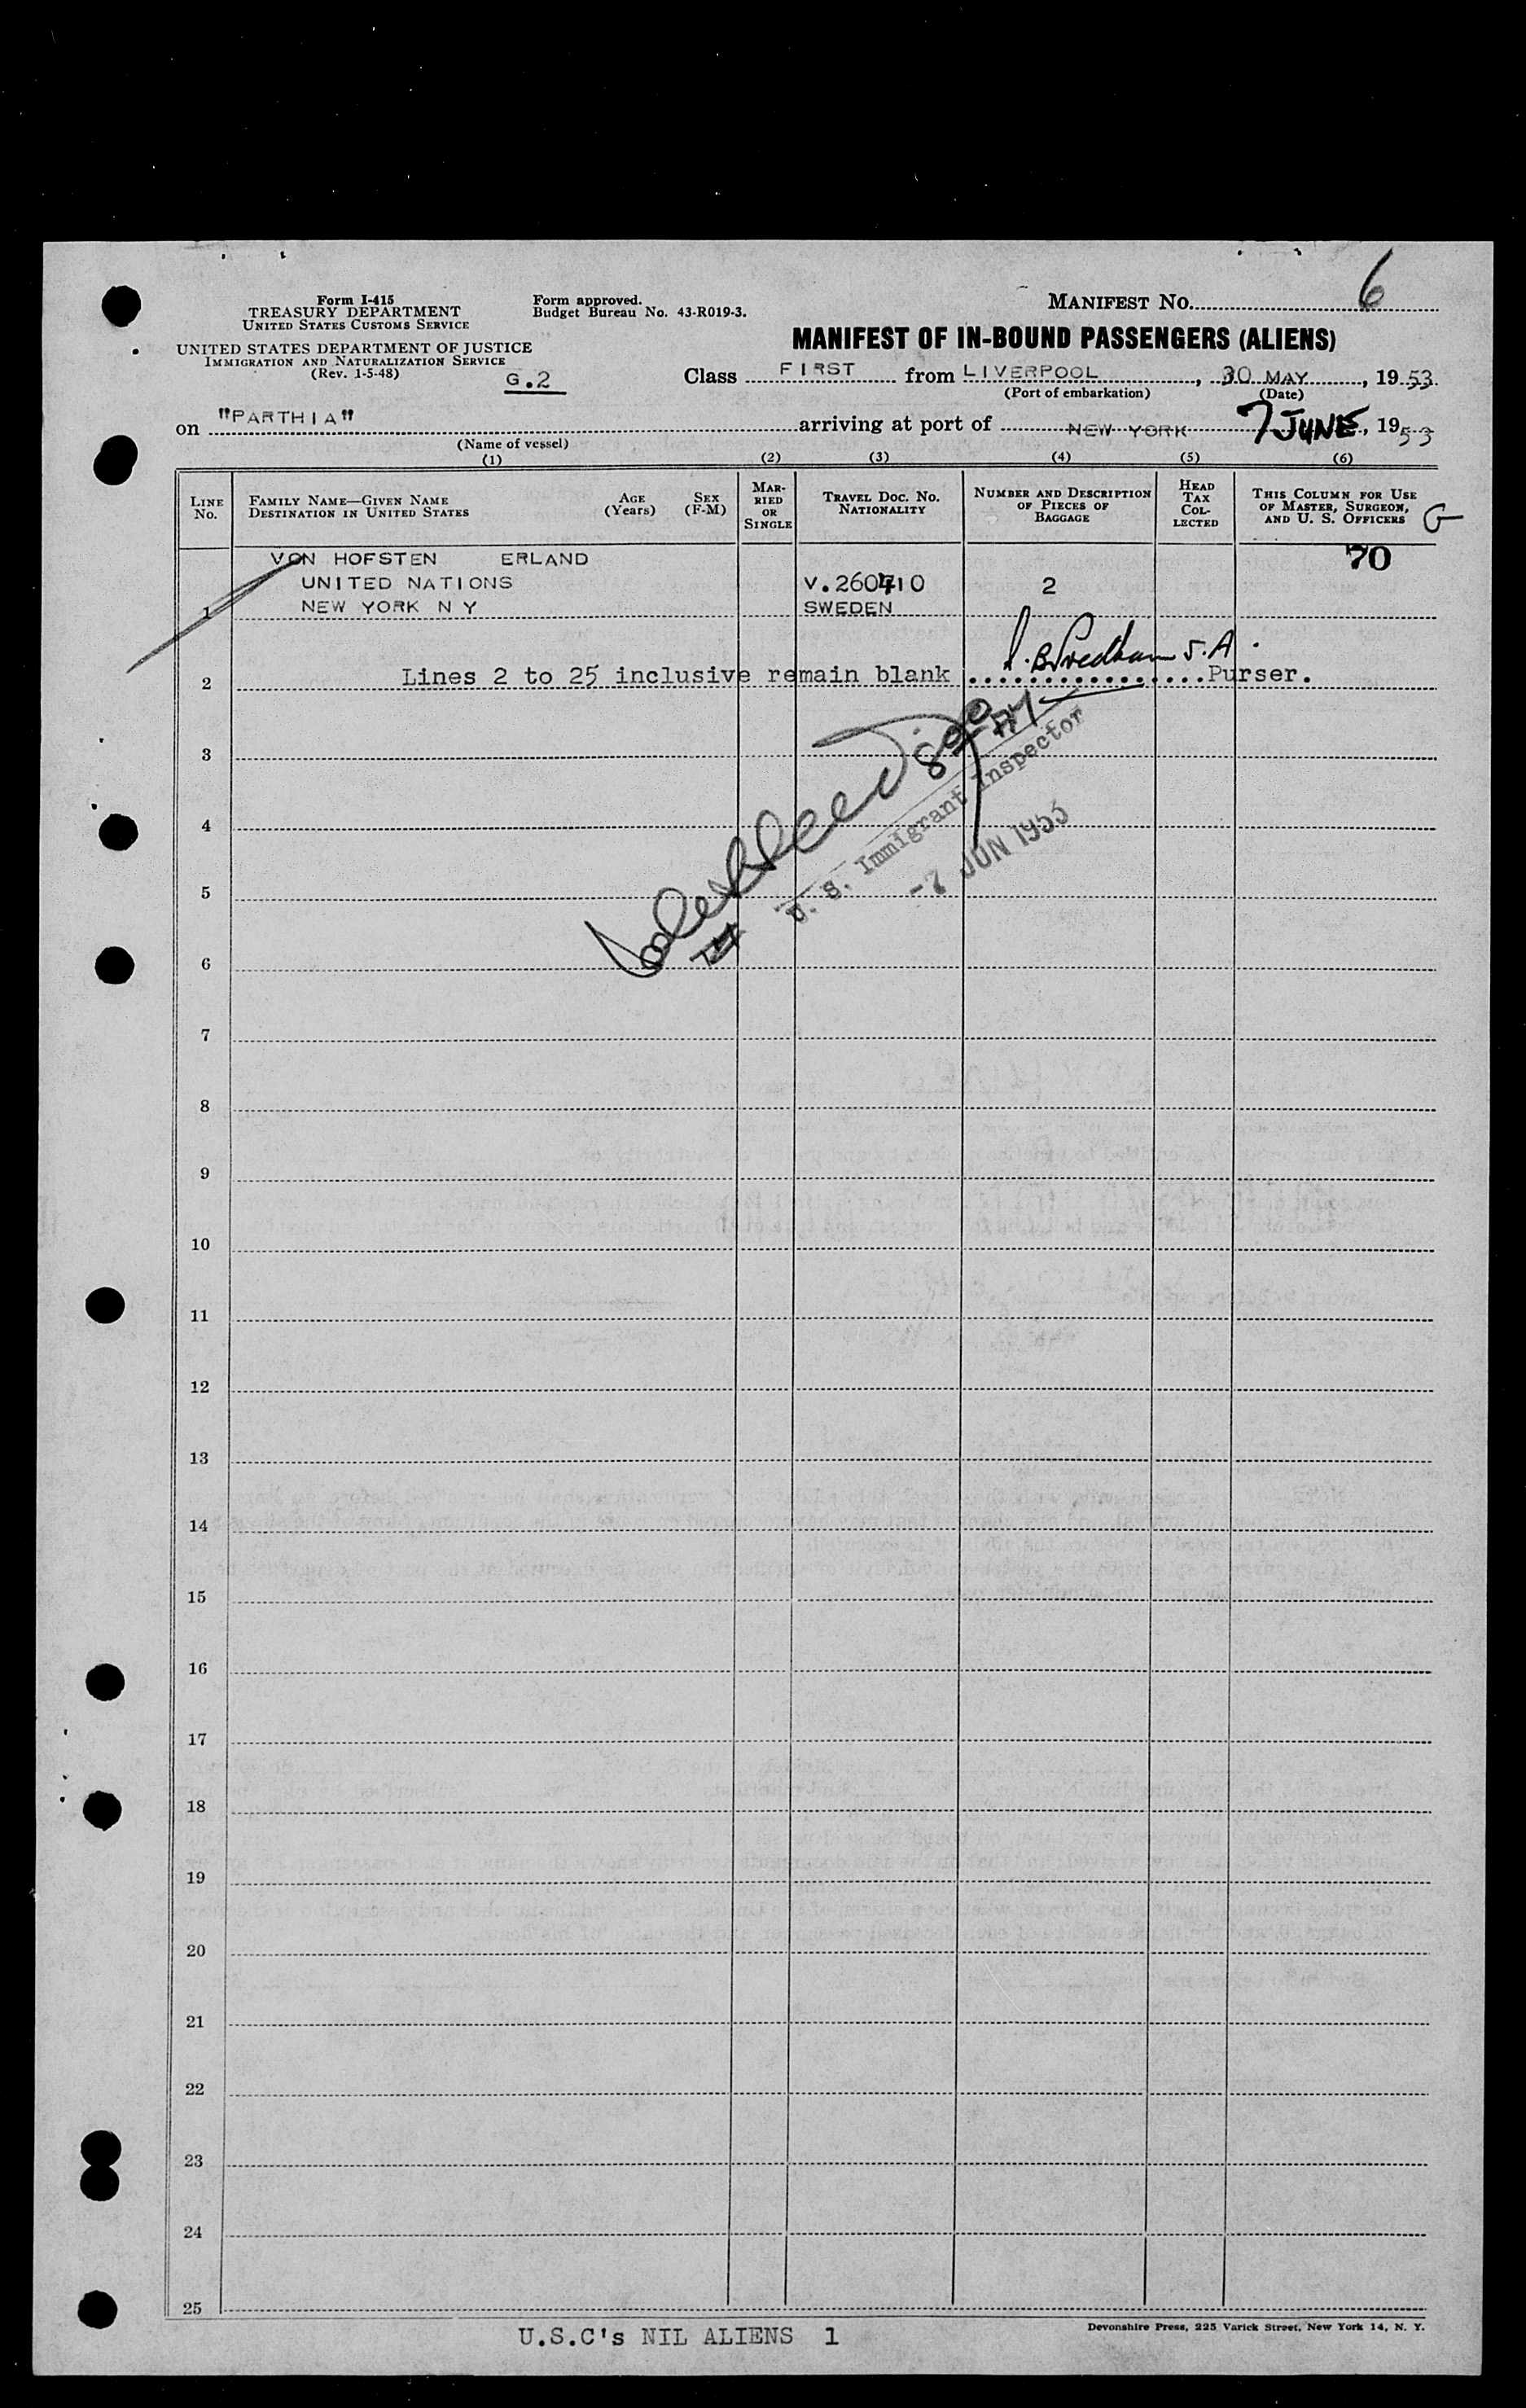 6
Form I-415
TREASURY DEPARTMENT
UNITED STATES CUSTOMS SERVICE
Form approved.
Budget Bureau No. 43-R019-3.
MANIFEST NO.
UNITED STATES DEPARTMENT OF JUSTICE
IMMIGRATION AND NATURALIZATION SERVICE
(Rev. 1-5-48)
G.2
MANIFEST OF IN-BOUND PASSENGERS (ALIENS)
Class FIRST from LIVERPOOL, 30 MAY, 1953
(Port of embarkation) (Date)
on "PARTHIA" arriving at port of NEW YORK 7 JUNE, 1953
(Name of vessel)
(1) (2) (3) (4) (5) (6)
LINE No. FAMILY NAME—GIVEN NAME DESTINATION IN UNITED STATES AGE (Years) SEX (F-M) MARRIED OR SINGLE TRAVEL DOC. NO. NATIONALITY NUMBER AND DESCRIPTION OF PIECES OF BAGGAGE HEAD TAX COLLECTED THIS COLUMN FOR USE OF MASTER, SURGEON, AND U. S. OFFICERS G
VON HOFSTEN ERLAND 70
UNITED NATIONS V.260410 2
1 NEW YORK N Y SWEDEN
2 Lines 2 to 25 inclusive remain blank ................Purser.
3
4
U. S. Immigrant Inspector
-7 JUN 1953
5
6
7
8
9
10
11
12
13
14
15
16
17
18
19
20
21
22
23
24
25
U.S.C's NIL ALIENS 1
Devonshire Press, 225 Varick Street, New York 14, N. Y.